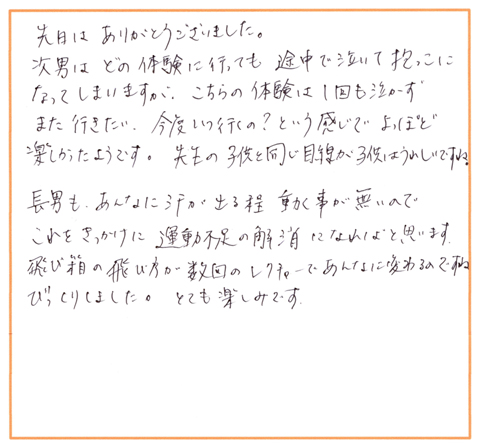 先日は ありがとうございました。
次男は どの体験に行っても 途中で泣いて抱っこに
なってしまいますが、こちらの体験は1回も泣かず
また行きたい、今度いつ行くの？という感じで よっぽど
楽しかったようです。先生の子供と同じ目線が子供はうれしいですね。
長男も、あんなに汗が出る程 動く事が無いので
これをきっかけに 運動不足の解消になればと思います。
飛び箱の飛び方が数回のレクチャーであんなに変わるのですね
びっくりしました。 とても楽しみです。